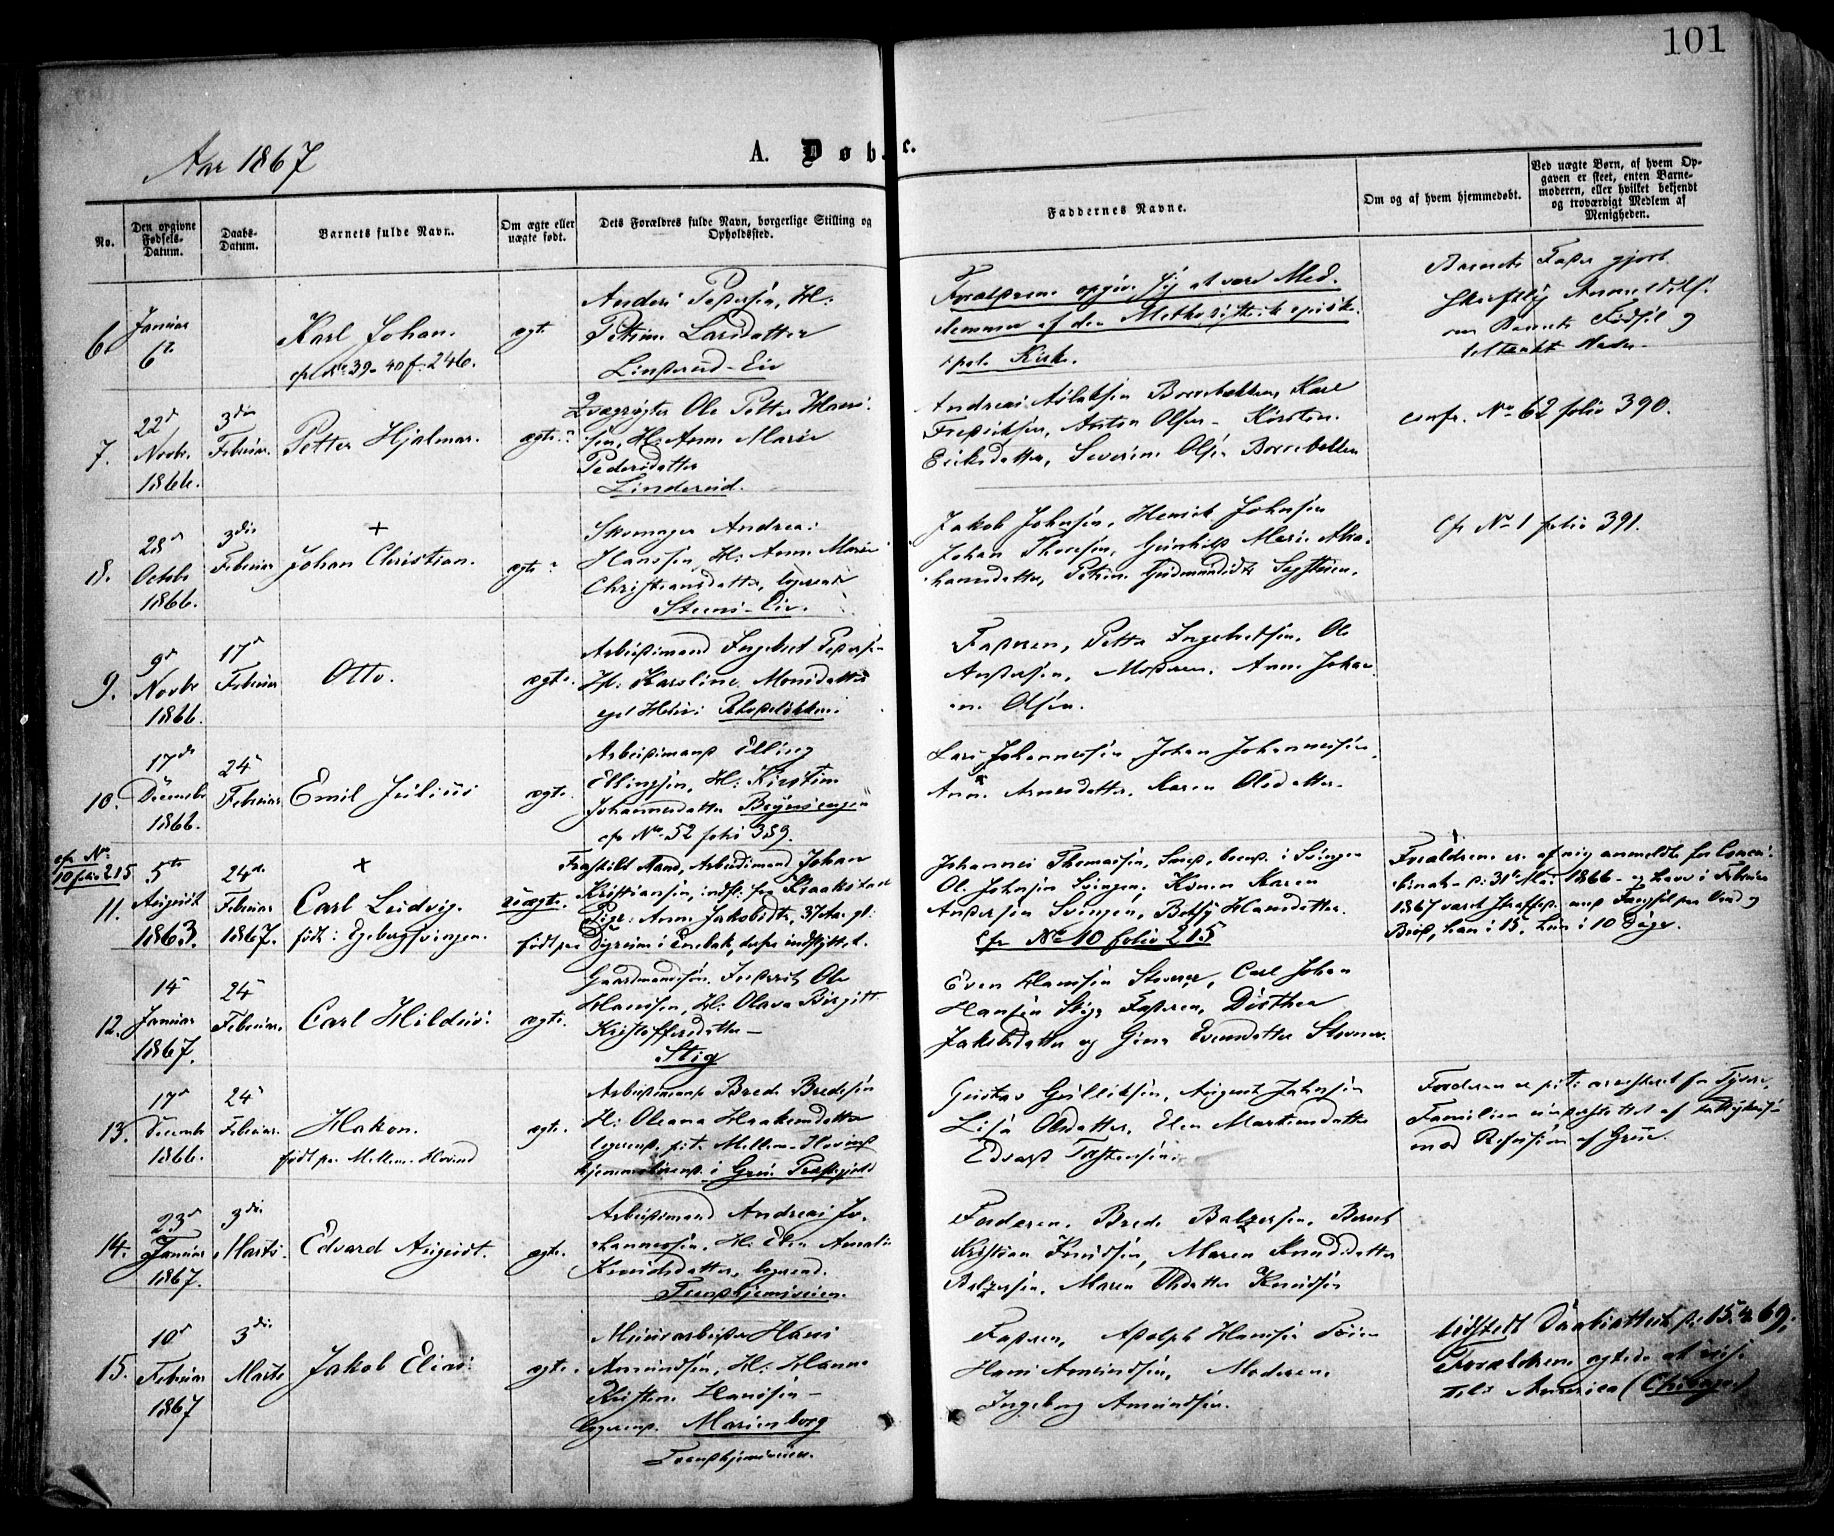 101
Aar 1867
A. Døbte.
No.
Den opgivne Fødsels-Datum.
Daabs-Datum.
Barnets fulde Navn.
Om ægte eller uægte født.
Dets Forældres fulde Navn, borgerlige Stilling og Opholdssted.
Faddernes Navne.
Om og af hvem hjemmedøbt.
Ved uægte Børn, af hvem Opgaven er skeet, enten Barnemoderen, eller hvilket bekjendt og troværdigt Medlem af Menigheden.
6.
Januar
6te
Karl Johan.
cfr No 39-40 f. 246.
ægte
Anders Pedersen, H:
Petrine Larsdatter
Linderud-Eie
Forældrene opgiv. sig at være Med-
lemmer af den Methodistiske episko-
pale Kirke.
Barnets Fader gjort
skriftlig Anmeldelse
om Barnets Fødsel og
tiltænkt Navn.
7.
22d
Novbr.
1866.
3die
Februar.
Petter Hjalmar.
ægte.
Ole Petter Han-
sen, H: Anne Marie
Pedersdatter
Linderud.
Andreas Aslaksen Borrebækken, Karl
Fredriksen, Anton Olsen, Kirsten
Eriksdatter, Severine Olsen Borrebækken
confr. No 62 folio 390.
8.
28d
Octobr
1866.
3die
Februar
+
Johan Christian.
ægte
Skomager Andreas
Hanssen, H: Anne Marie
Christiansdatter, logerende
Steens-Eie.
Jakob Johnsen, Henrik Johnsen
Johan Thoresen, Gunhild Marie Abra-
hamsdatter, Petrine Gudmundsdtr
Cfr No 1 folio 391.
9.
9d
Novbr
1866.
17d
Februar
Otto.
ægte.
Arbeidsmand Ingebret Peders-
H: Karoline Monsdatter
Faderen, Petter Ingebretsen, Ole
Andersen, Moderen, Anne Johan-
ne Olsen.
10.
17de
Decembr
1866.
24d
Februar
Emil Julius
ægte.
Arbeidsmand Elling
Ellingsen, H: Kirstine
Johannesdatter Brynsengen
cfr No 52 folio 389.
Lars Johannessen, Johan Johannessen,
Anne Arnesdatter, Karen Olsdatter.
cfr No
10 folio 215
11.
5te
August
1863.
24de
Februar
1867.
+
Carl Ludvig.
født i Egebergsvingen.
uægte.
født paa
Fraskildt Mand, Arbeidsmand Johan
Kristiansen, indfl. fra Kraakstad
Pige: Anne Jakobsdtr, 37 Aar gl:
i Enebak, derfra indflyttet.
Johannes Thomassen, i Svingen
Ole Johnsen Svingen, Konen Karen
Andersen Svingen, Betsy Hansdatter.
Cfr No 10 folio 215
Forældrene er af mig anmeldte for Concu-
binat d. 31te Mai 1866 og blev i Februar
1867 varet straffede med Fængsel paa Vand og
Brød, han i 15, hun i 10 Dage.
12.
14d
Januar
1867.
24d
Februar.
Carl Hildus:
ægte.
Gaardmandssøn, Frederik Ole
Hanssen, H: Olava Birgitte
Kristoffersdatter
Stig
Even Hanssen Stovner, Carl Johan
Hansen Stig, Faderen, Dorthea
Jakobsdatter og Gina Evensdatter Stovner.
13.
17d
Decembr
1866.
24d
Februar.
Hakon.
født paa Mellem-Hovind
ægte.
Arbeidsmand Brede Bredesen
H: Oleana Haakensdatter
logerende p: t: Mellem-Hovind
hjemmehørende i Grue Præstegjeld
Gustav Gulliksen, August Johnsen
Lisa Olsdatter, Elen Martinsdatter
Edvard Torstensen.
Faderen er p: t: arresteret for Tyveri,
Familien understøttet af Fattigkassen
med Refusion af Grue.
14.
23d
Januar
1867.
3die
Marts.
Edvard August.
ægte.
Arbeidsmand Andreas Jo-
hannessen, H: Elen Amalie
Knudsdatter, logerend.
Trondhjemsveien.
Faderen, Brede Balzersen, Bernt
Kristian Knudsen, Maren Knudsdatter
Balzersen, Maren Olsdatter Knudsen
15.
10d
Februar
1867
3die
Marts
Jakob Elias:
ægte.
Muurarbeider Hans
Amundsen, H: Hanna
Kristine Hansen
logerend. Marienborg
Trondhjemsveien.
Faderen, Adolph Hansen Tøien
Hans Amundsen, Moderen,
Ingeborg Amundsen.
Udstedt Daabsattest d. 15/4 69,
Forældrene agtede at reise
til America (Chicago)